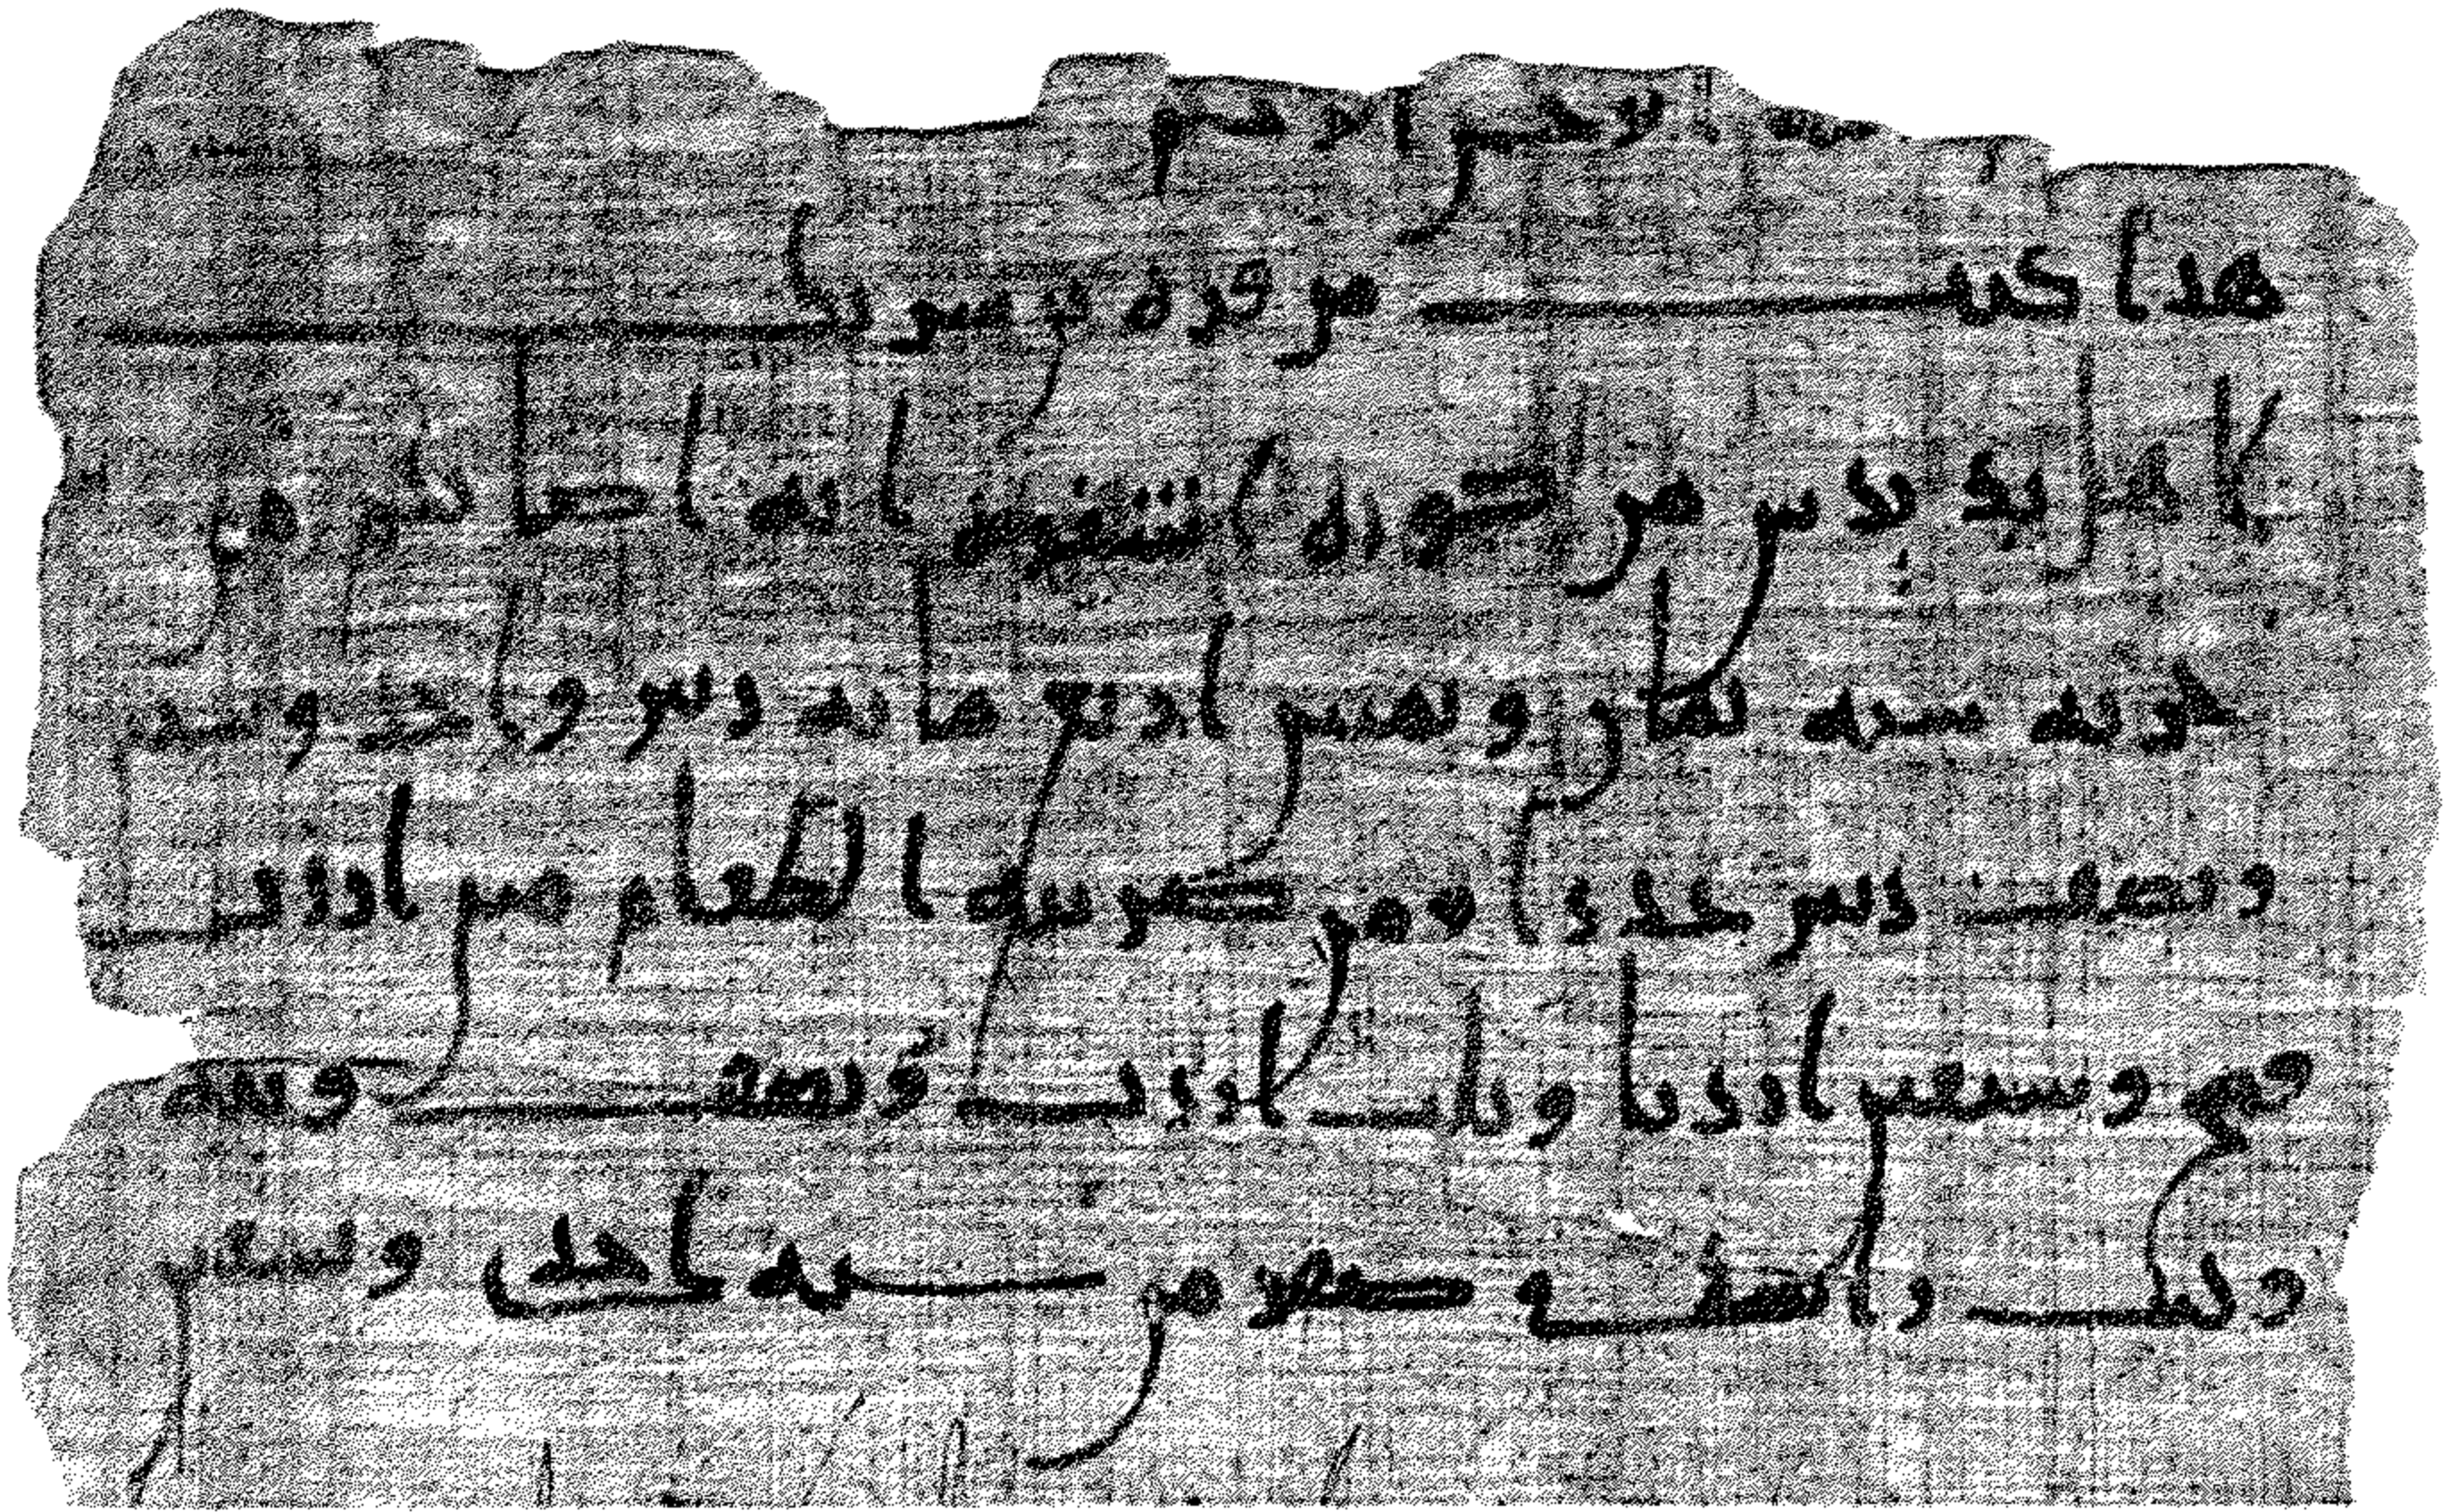 بسم الله الرحمن الرحيم
هذا كتب من قرة بن شريك
لاهل من كورة اشقوه انه اصابكم من
جزية سنة ثمان وثمنين اربع مائة دينر واحد وستين
ونصف دينر عددا ومن ضريبة الطعام اردب
قمح وسبعين اردبا وثلث اردب ونصف
وكتب في صفر من سنة احدى وتسعين